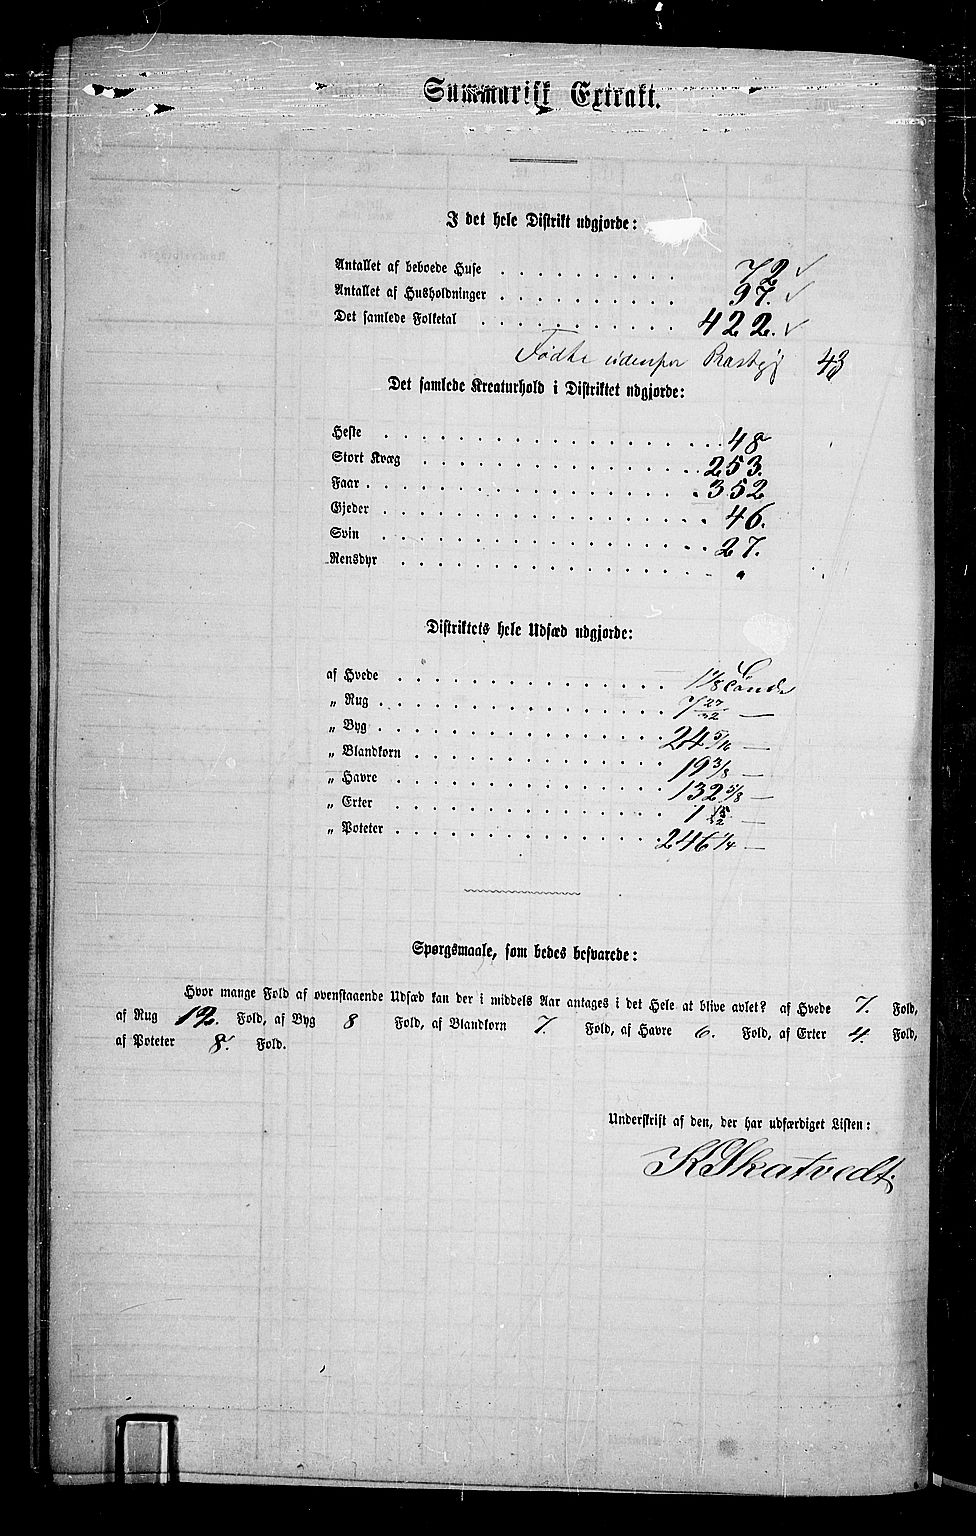 Summarisk Extrakt.
I det hele Distrikt udgjorde:
Antallet af beboede Huse . . . . . . . . . . 72 ✓
Antallet af Husholdninger . . . . . . . . . . 97. ✓
Det samlede Folketal . . . . . . . . . . . 422. ✓
Fødte udenfor 43
Det samlede Kreaturhold i Distriktet udgjorde:
Heste . . . . . . . . . . . . . . . . . . 48
Stort Kvæg . . . . . . . . . . . . . . . 253.
Faar . . . . . . . . . . . . . . . . . . 352
Gjeder . . . . . . . . . . . . . . . . . 46.
Svin . . . . . . . . . . . . . . . . . . 27.
Rensdyr . . . . . . . . . . . . . . . . . "
Distriktets hele Udsæd udgjorde:
af Hvede . . . . . . . . . . . . . . . 1 1/8 Tønde
„ Rug . . . . . . . . . . . . . . . . 7 27/32 —
„ Byg . . . . . . . . . . . . . . . . 24 5/16 —
„ Blandkorn . . . . . . . . . . . . . . 19 3/8 —
„ Havre . . . . . . . . . . . . . . . 132 5/8 —
„ Erter . . . . . . . . . . . . . . . 1 —
„ Poteter . . . . . . . . . . . . . . . 246 1/4 —
Spørgsmaale, som bedes besvarede:
Hvor mange Fold af ovenstaaende Udsæd kan der i middels Aar antages i det Hele at blive avlet? af Hvede 7. Fold,
af Rug 12. Fold, af Byg 8 Fold, af Blandkorn 7. Fold, af Havre 6. Fold, af Erter 4. Fold,
af Poteter 8. Fold.
Underskrift af den, der har udfærdiget Listen:
K Skatvedt.